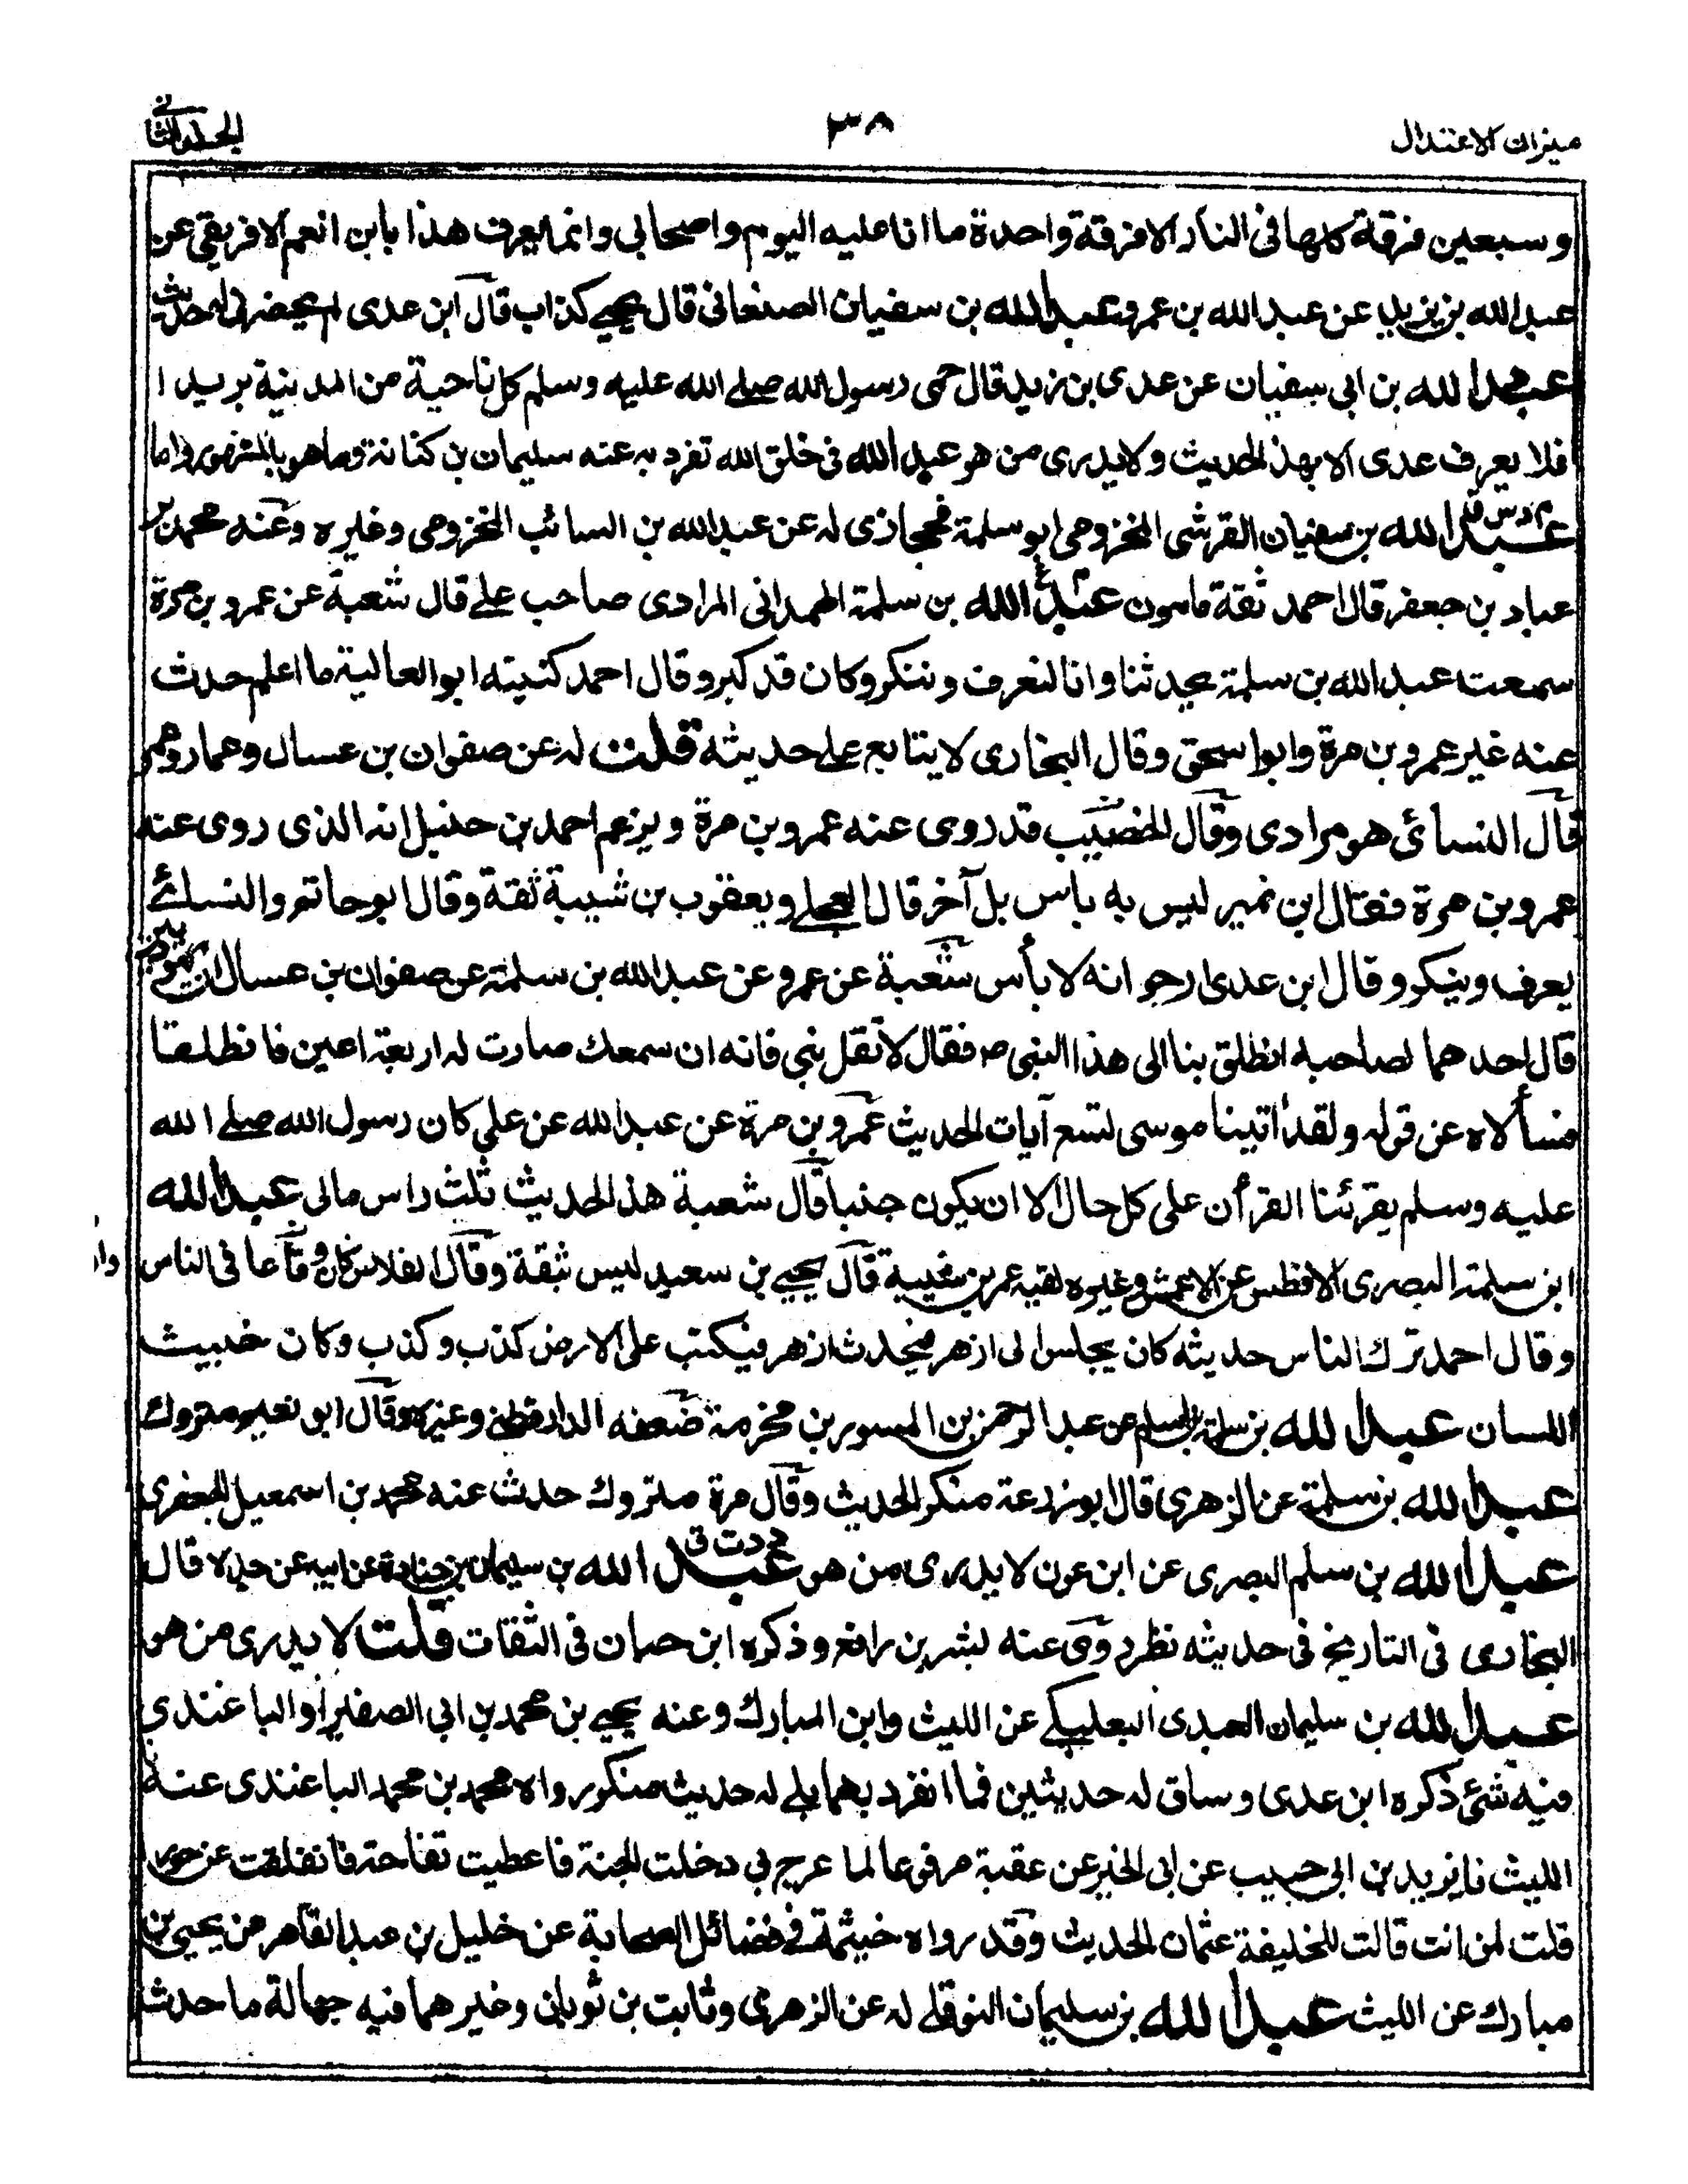 ميزان الاعتدال
٣٨
الجلد الثانى
وسبعين فرقة كلها فى النار الا فرقة واحدة ما انا عليه اليوم واصحابى وانما يعرف هذا بابن انعم الافريقى عن
عبد الله بن يزيد عن عبد الله بن عمرو عبد الله بن سفيان الصنعانى قال يحيى كذاب قال ابن عدى لم يحضرنى له حديث
عبد الله بن ابى سفيان عن عدى بن زيد قال حمى رسول الله صلى الله عليه وسلم كل ناحية من المدينة بريدا
فلا يعرف عدى الا بهذا الحديث ولا يدرى من هو عبد الله فى خلق الله تفرد به عنه سليمان بن كنانة وما هو بالمشهور واما
عبد الله بن سفيان القرشى المخزومى ابو سلمة فحجازى له عن عبد الله بن السائب المخزومى وغيره وعنه محمد بن
عباد بن جعفر قال احمد ثقة مامون عبد الله بن سلمة الهمدانى المرادى صاحب على قال شعبة عن عمرو بن مرة
سمعت عبد الله بن سلمة يحدثنا وانا لنعرف وننكر وكان قد كبر وقال احمد كنيته ابو العالية ما اعلم حدث
عنه غير عمرو بن مرة وابو اسحق وقال البخارى لا يتابع على حديثه قلت له عن صفوان بن عسال وعمار وعمر
قال النسائى هو مرادى وقال الخطيب قد روى عنه عمرو بن مرة ويزعم احمد بن حنبل انه الذى روى عنه
عمرو بن مرة فقال ابن نمير ليس به باس بل آخر قال العجلى ويعقوب بن شيبة ثقة وقال ابو حاتم والنسائى
يعرف وينكر وقال ابن عدى ارجو انه لا بأس شعبة عن عمرو عن عبد الله بن سلمة عن صفوان بن عسال ان يهوديين
قال احدهما لصاحبه انطلق بنا الى هذا النبى ص فقال لا تقل نبى فانه ان سمعك صارت له اربعة اعين فانطلقا
فسألاه عن قوله ولقد اتينا موسى تسع آيات الحديث عمرو بن مرة عن عبد الله عن على كان رسول الله صلى الله
عليه وسلم يقرئنا القرأن على كل حال الا ان يكون جنبا قال شعبة هذا الحديث ثلث راس مالى عبد الله
ابن سلمة البصرى الافطس عن الاعمش وغيره لقيه عمر بن شبة قال يحيى بن سعيد ليس بثقة وقال الفلاس كان وقاعا فى الناس
وقال احمد ترك الناس حديثه كان يجلس الى ازهر فيحدث ازهر فيكتب على الارض كذب وكذب وكان خبيث
اللسان عبد الله بن سلمة بن اسلم عن عبد الرحمن بن المسور بن مخرمة ضعفه الدارقطنى وغيره وقال ابو نعيم متروك
عبد الله بن سلمة عن الزهرى قال ابو زرعة منكر الحديث وقال مرة متروك حدث عنه محمد بن اسمعيل الجعفرى
عبد الله بن سلم البصرى عن ابن عون لا يدرى من هو د ت ق عبد الله بن سليمان بن جنادة عن ابيه عن جده قال
البخارى فى التاريخ فى حديثه نظر روى عنه بشر بن رافع وذكره ابن حبان فى الثقات قلت لا يدرى من هو
عبد الله بن سليمان العبدى البعلبكى عن الليث وابن المبارك وعنه يحيى بن محمد بن ابى الصفيرا والباغندى
فيه شئ ذكره ابن عدى وساق له حديثين فما انفرد بهما بلى له حديث منكر رواه محمد بن محمد الباغندى عنه
الليث نا يزيد بن ابى حبيب عن ابى الخير عن عقبة مرفوعا لما عرج بى دخلت الجنة فاعطيت تفاحة فانفلقت عن حوراء
قلت لمن انت قالت للخليفة عثمان الحديث وقد رواه خيثمة فى فضائل الصحابة عن خليل بن عبد القاهر عن يحيى بن
مبارك عن الليث عبد الله بن سليمان النوفلى له عن الزهرى وثابت بن ثوبان وغيرهما فيه جهالة ما حدث